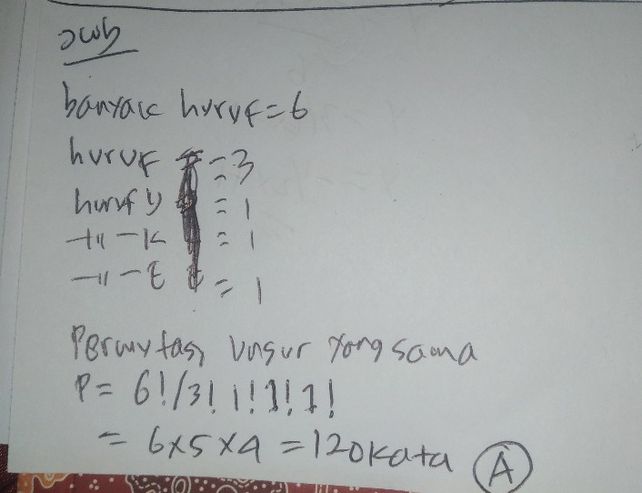 Jwb
banyak huruf = 6
huruf = 3
huruf y = 1
-11-K = 1
-11-E = 1
Permutasi unsur yang sama
P = 6!/3! 1! 1! 1!
= 6x5x4 = 120 kata A